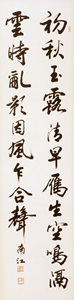 初秋玉露清早雁出空鳴隔
雲時亂影因風乍合聲
南江